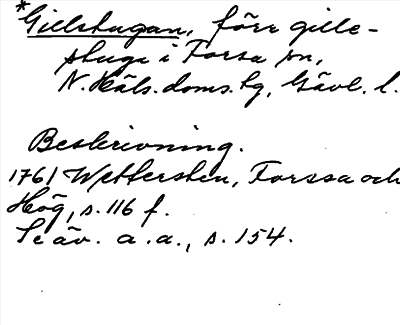 *Gillstugan, förr gille-
stuga i Forsa sn,
N. Häls. doms.tg, Gävl. l.
Beskrivning.
1761 Wettersten, Forssa och
Hög, s. 116 f.
Se äv. a.a., s. 154.